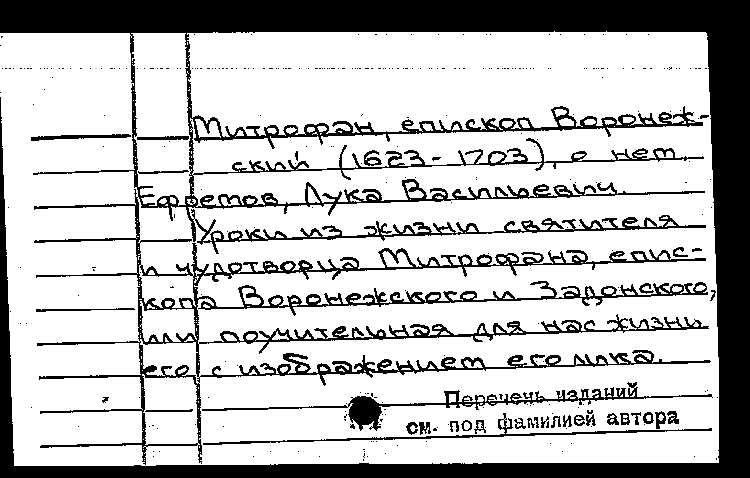 Митрофан, епископ Воронеж-
ский (1623-1703), о нем.
Ефремов, Лука Васильевич.
Уроки из жизни святителя
и чудотворца Митрофана, епис-
копа Воронежского и Задонского,
или поучительная для нас жизнь
его, с изображением его лика.
Перечень изданий
см. под фамилией автора